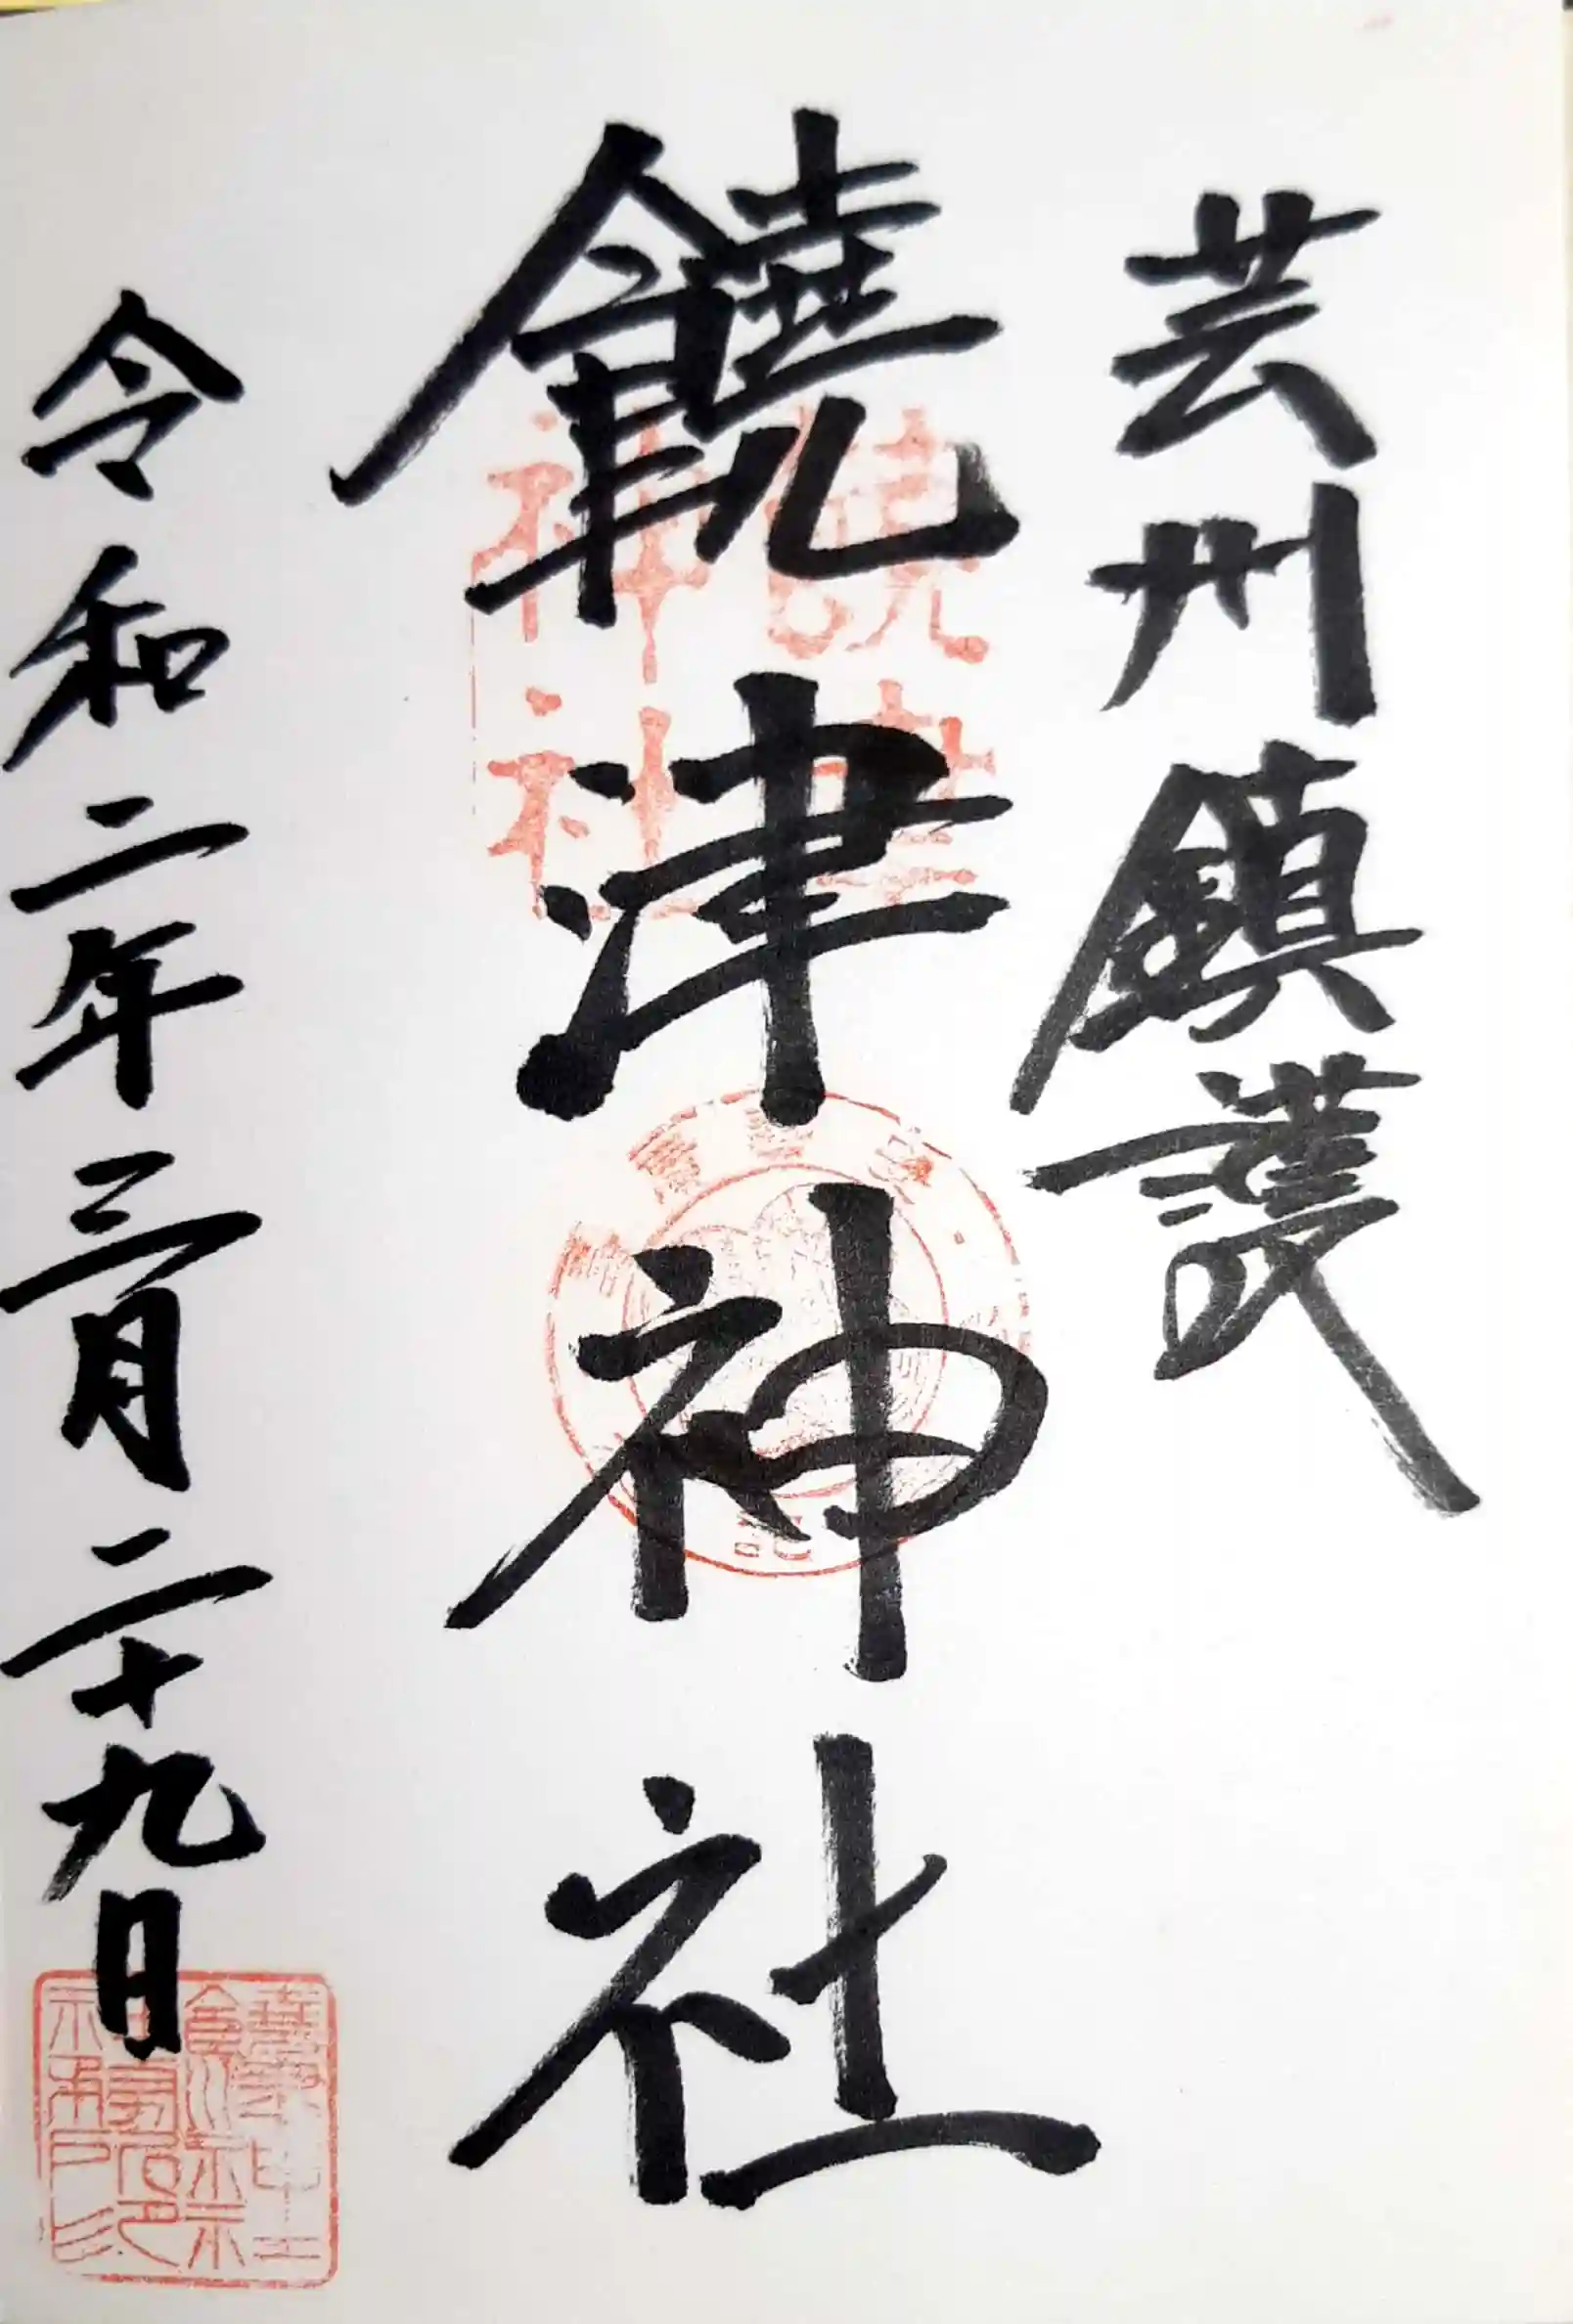 芸州鎮護
饒津神社
令和二年三月二十九日
饒津
神社